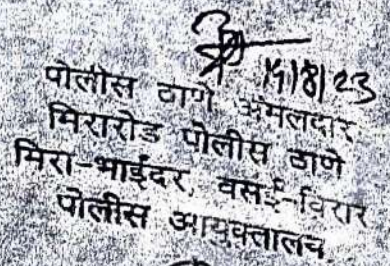 14/8/23
पोलीस ठाणे अंमलदार
मिरारोड पोलीस ठाणे
मिरा-भाईंदर, वसई-विरार
पोलीस आयुक्तालय